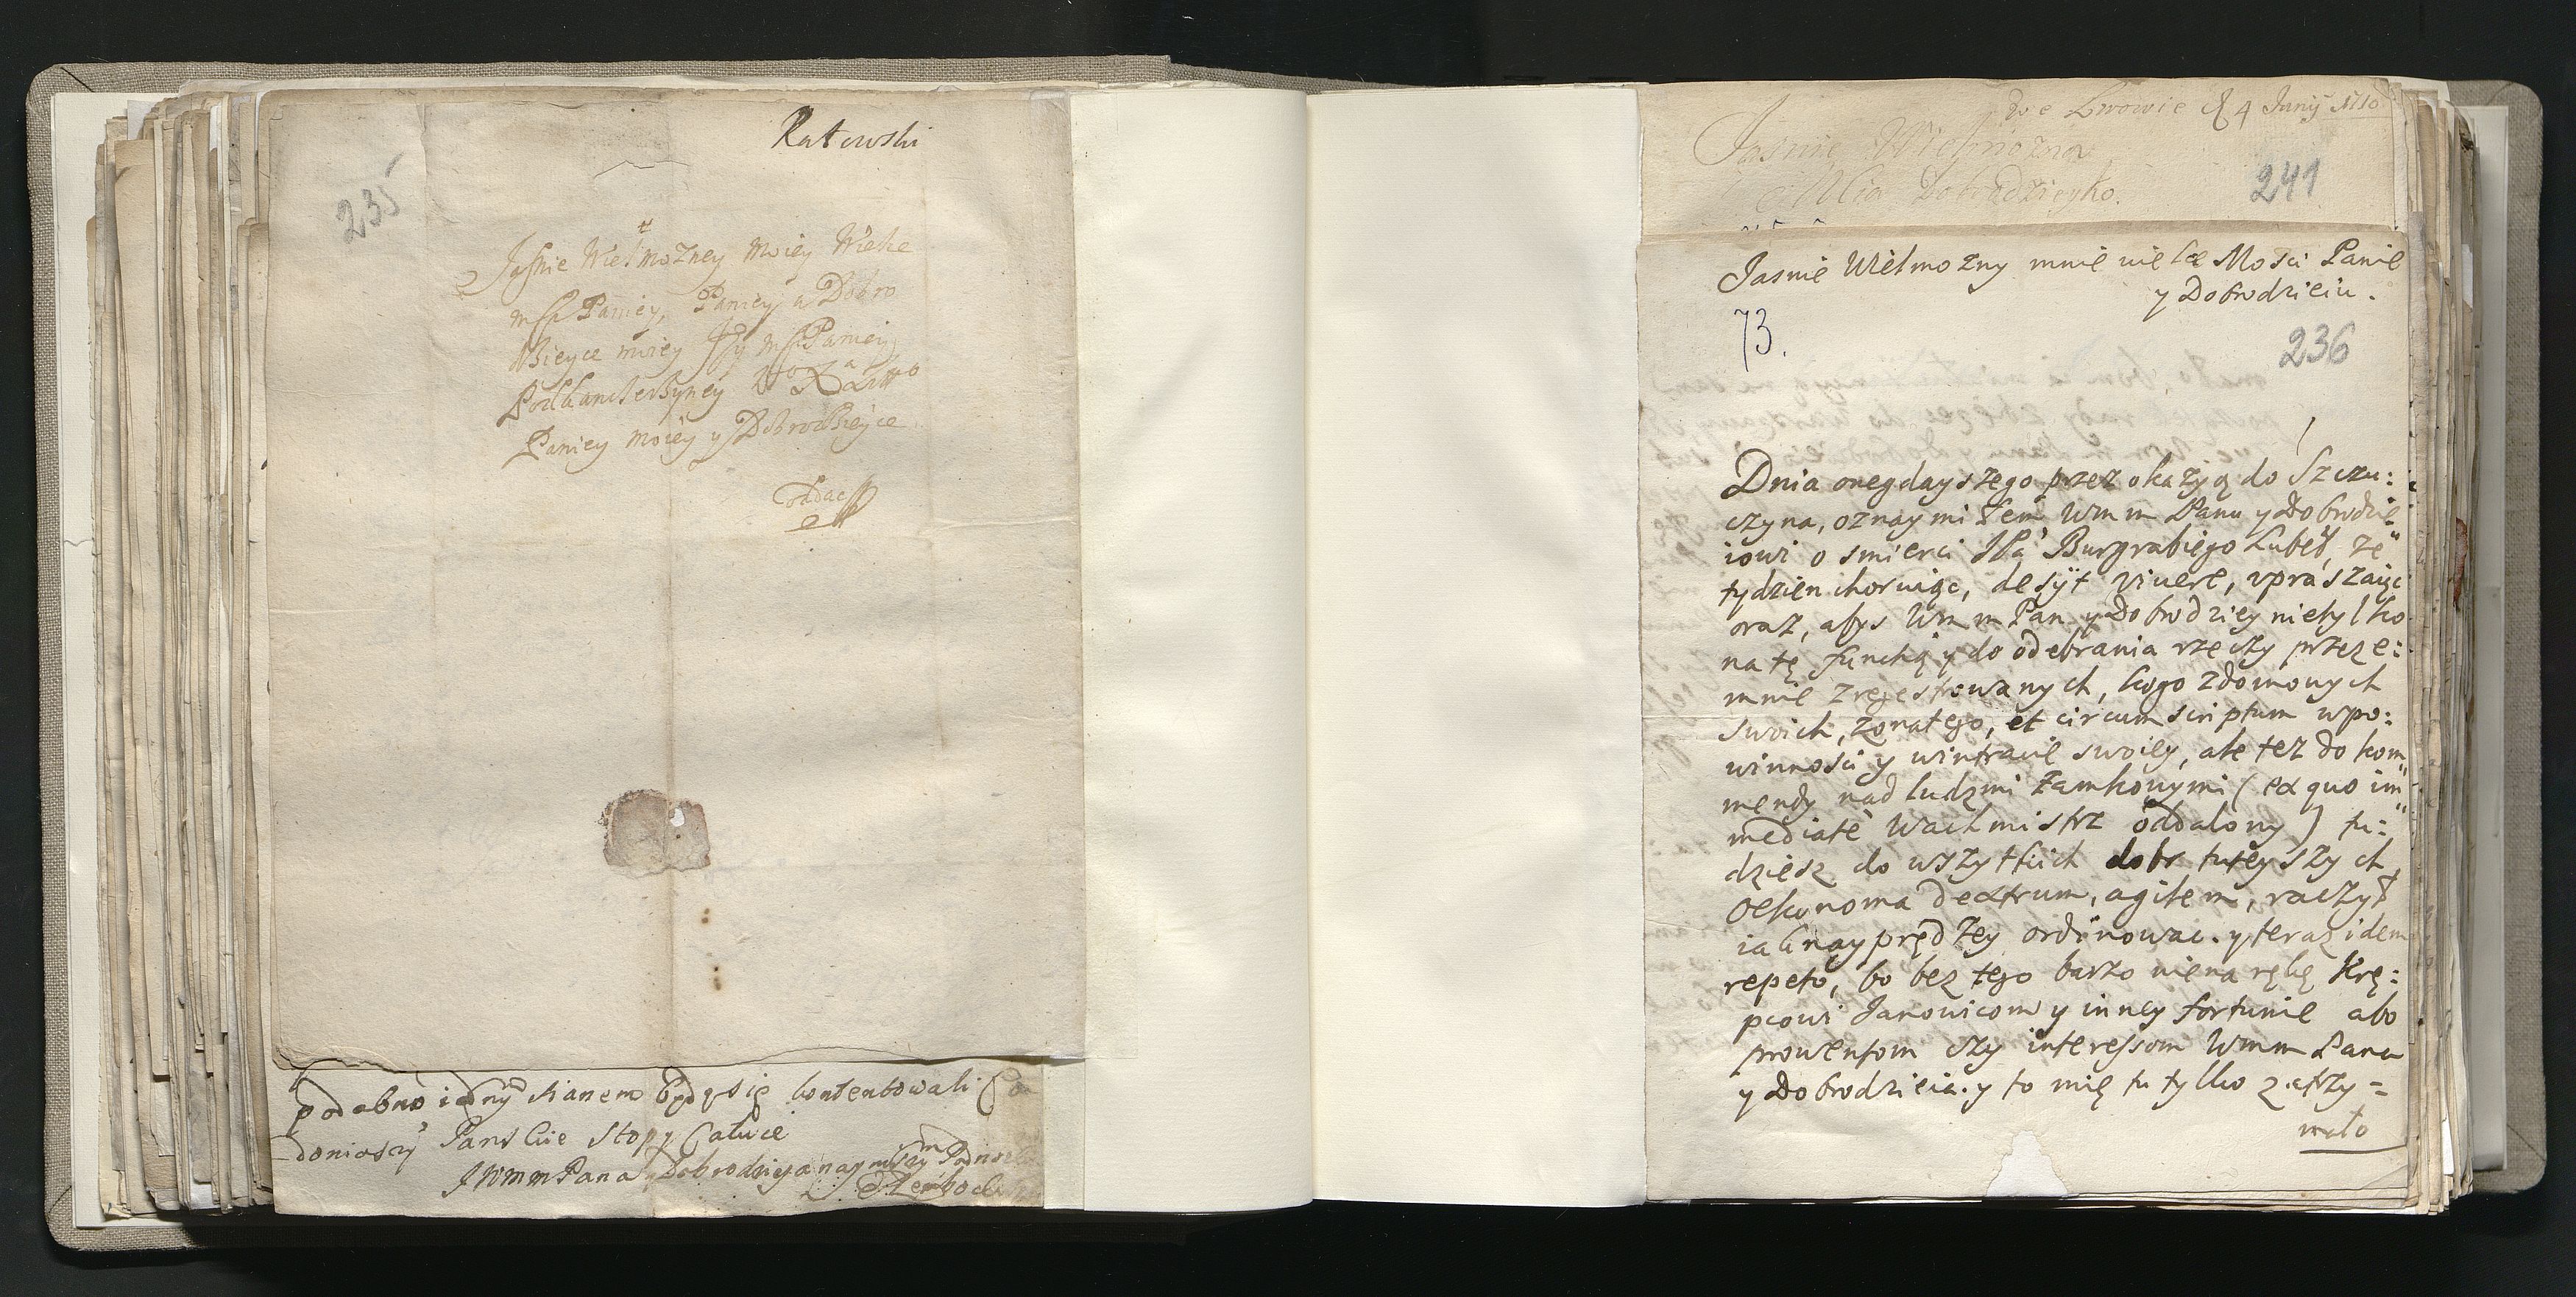 Ratowski
235
Jaśnie Wielmożney moiey Wielce
mści Paniey, Paniey a Dobro
dzieyce moiey Jey mści Paniey
Podkanclerzyney W° X° Litt°
Paniey moiey y Dobrodzieyce
oddac
podobno iedny stanem będą się kontentowali
doniosszy Panskie stopy całuie
J Wmm Pana y Dobrodzieja naymszy
we Lwowie d 4 Junij 1710
Jasnie Wielmozna
Mścia Dobrodzieyko.
241
Jasnie Wielmozny mnie wielce Mości Panie
y Dobrodzieiu.
73.
236
Dnia onegdayszego przez okazyą do Szczu:
czyna, oznaymiłem Wmm Panu y Dobrodzie
iowi o smierci JPa Burgrabiego Lubel, ze
tydzien chorując, desijt vivere, upraszaiąc
oraz, abys Wmm Pan y Dobrodziey nietylko
na tę funcką y do odebrania rzeczy przeze:
mnie zregestrowanych, kogo z domowych
swoich, zonatego, et circumscriptum w po:
winności y wintracie swoiey, ale tez do kom
mendy nad ludzmi zamkowymi (ex quo im
mediate Wachmistrz oddalony) tu:
dziesz do wszytkich dobr tuteyszych
Oekonoma dextrum, agilem, raczył
iak nayprędzey ordinowac. y teraz idem
repeto, bo bez tego barzo nie na rękę Krę:
pcowi Janowicom y inney fortunie abo
prowentom czy interessom Wmm Pana
y Dobrodzieia. y to mię tu tylko zatrzy=
mało